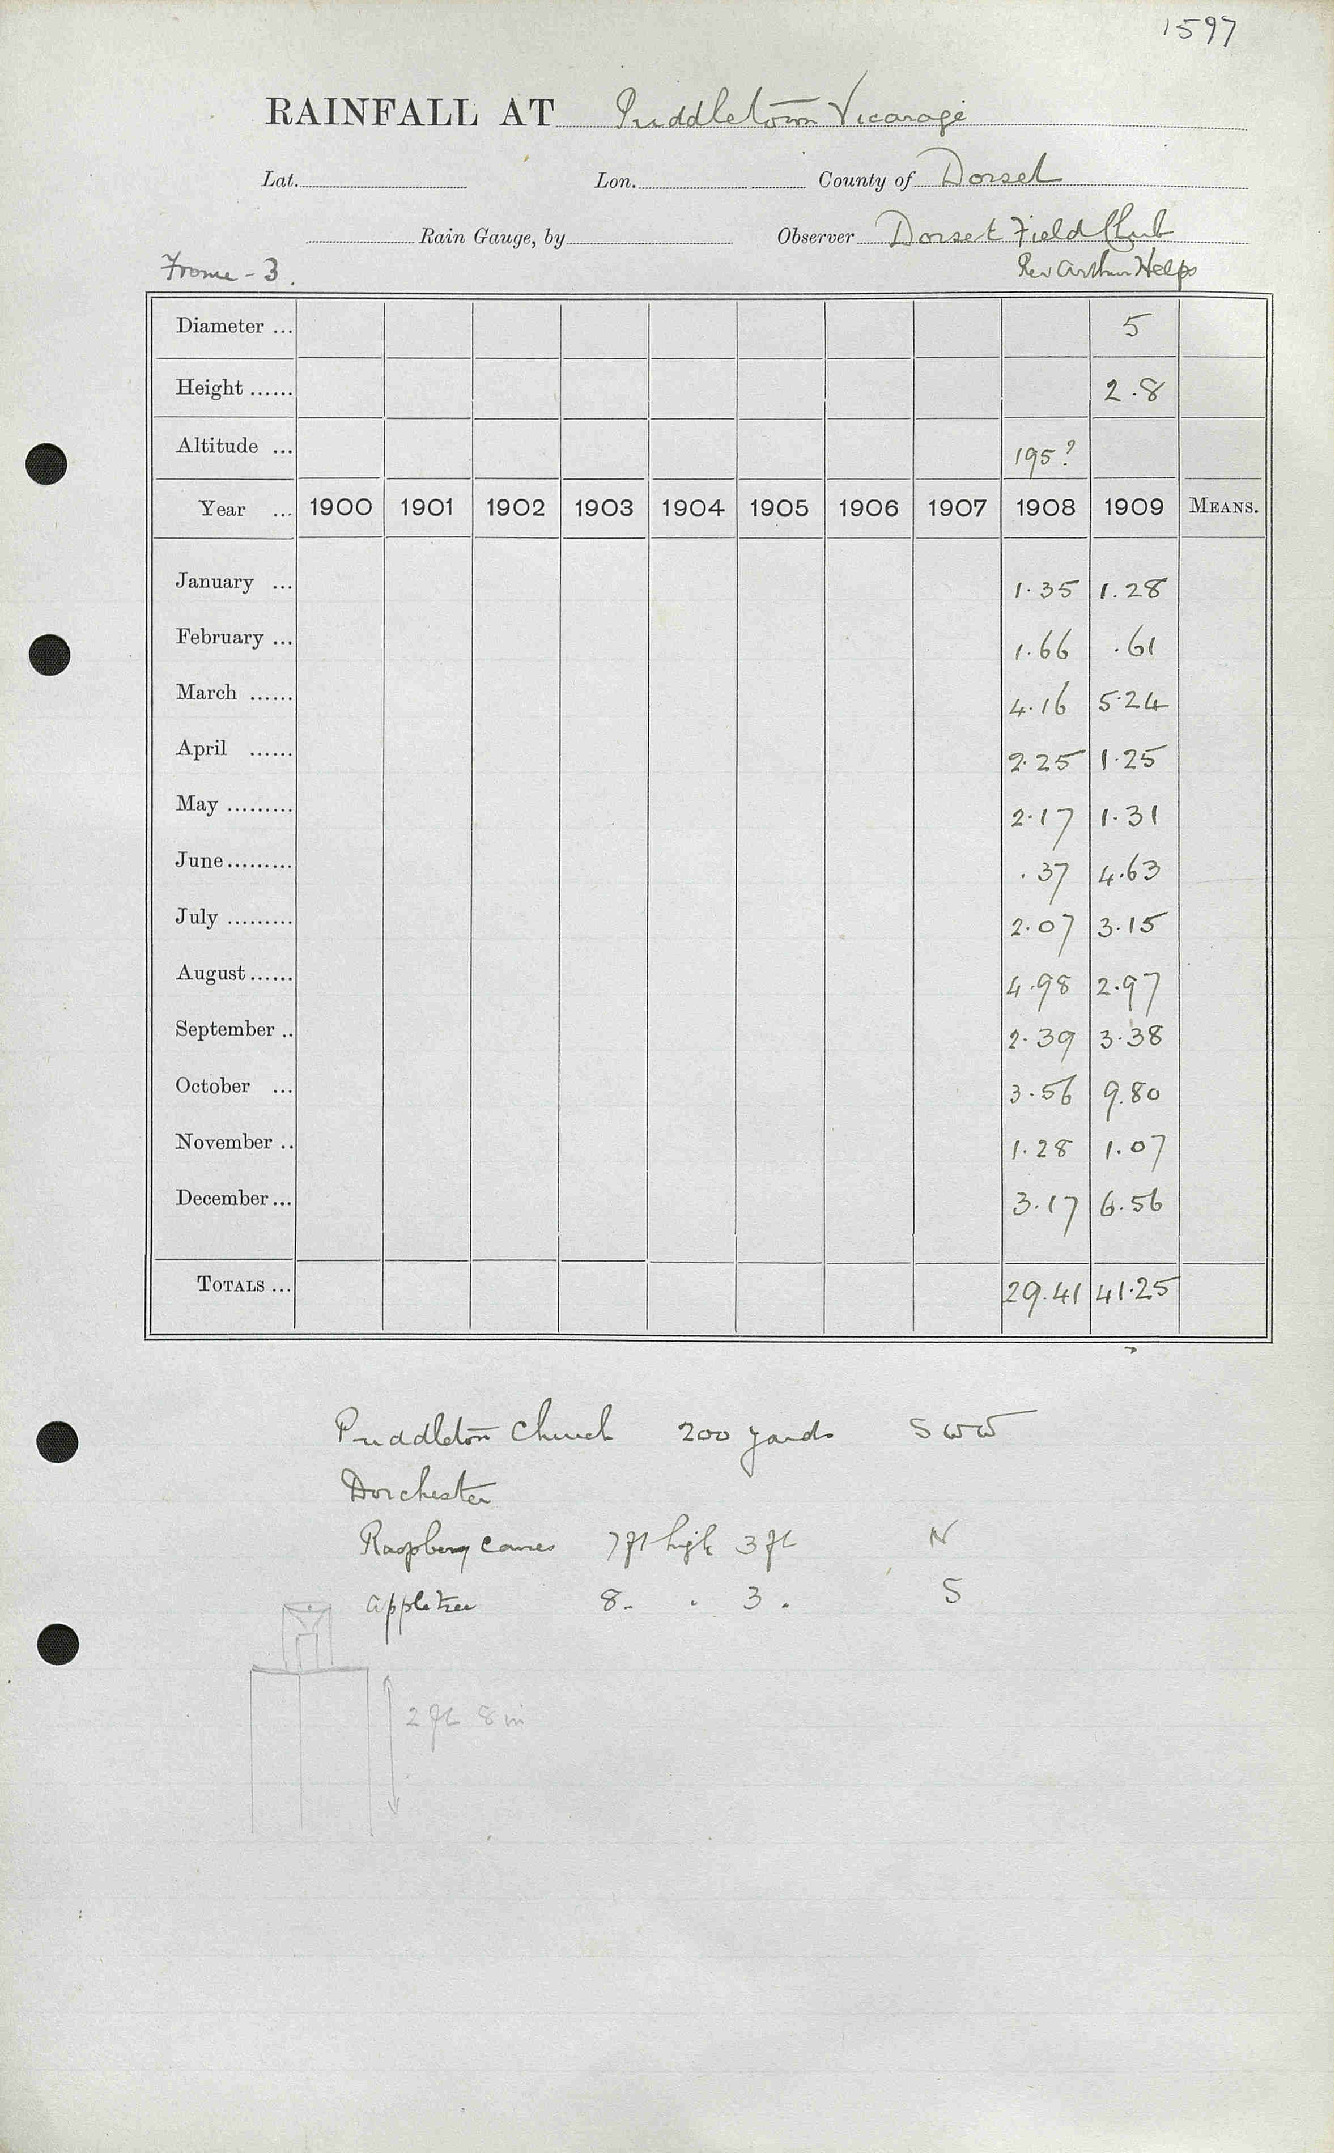 1597
RAINFALL AT Puddletown Vicarage
Lat. Lon. County of Dorset
Rain Gauge, by Observer Dorset Field Club
Frome - 3. Rev Arthur Helps
Diameter ... 5
Height ...... 2.8
Altitude ... 195?
Year ... 1900 1901 1902 1903 1904 1905 1906 1907 1908 1909 MEANS.
January ... 1.35 1.28
February ... 1.66 .61
March ...... 4.16 5.24
April ...... 2.25 1.25
May ......... 2.17 1.31
June ......... .37 4.63
July ......... 2.07 3.15
August ...... 4.98 2.97
September .. 2.39 3.38
October ... 3.56 9.80
November .. 1.28 1.07
December ... 3.17 6.56
TOTALS ... 29.41 41.25
Puddleton Church 200 yards SWW
Dorchester
Raspberry Canes 7 ft high 3 ft N
Apple tree 8 . . 3 . S
2 ft 8 in